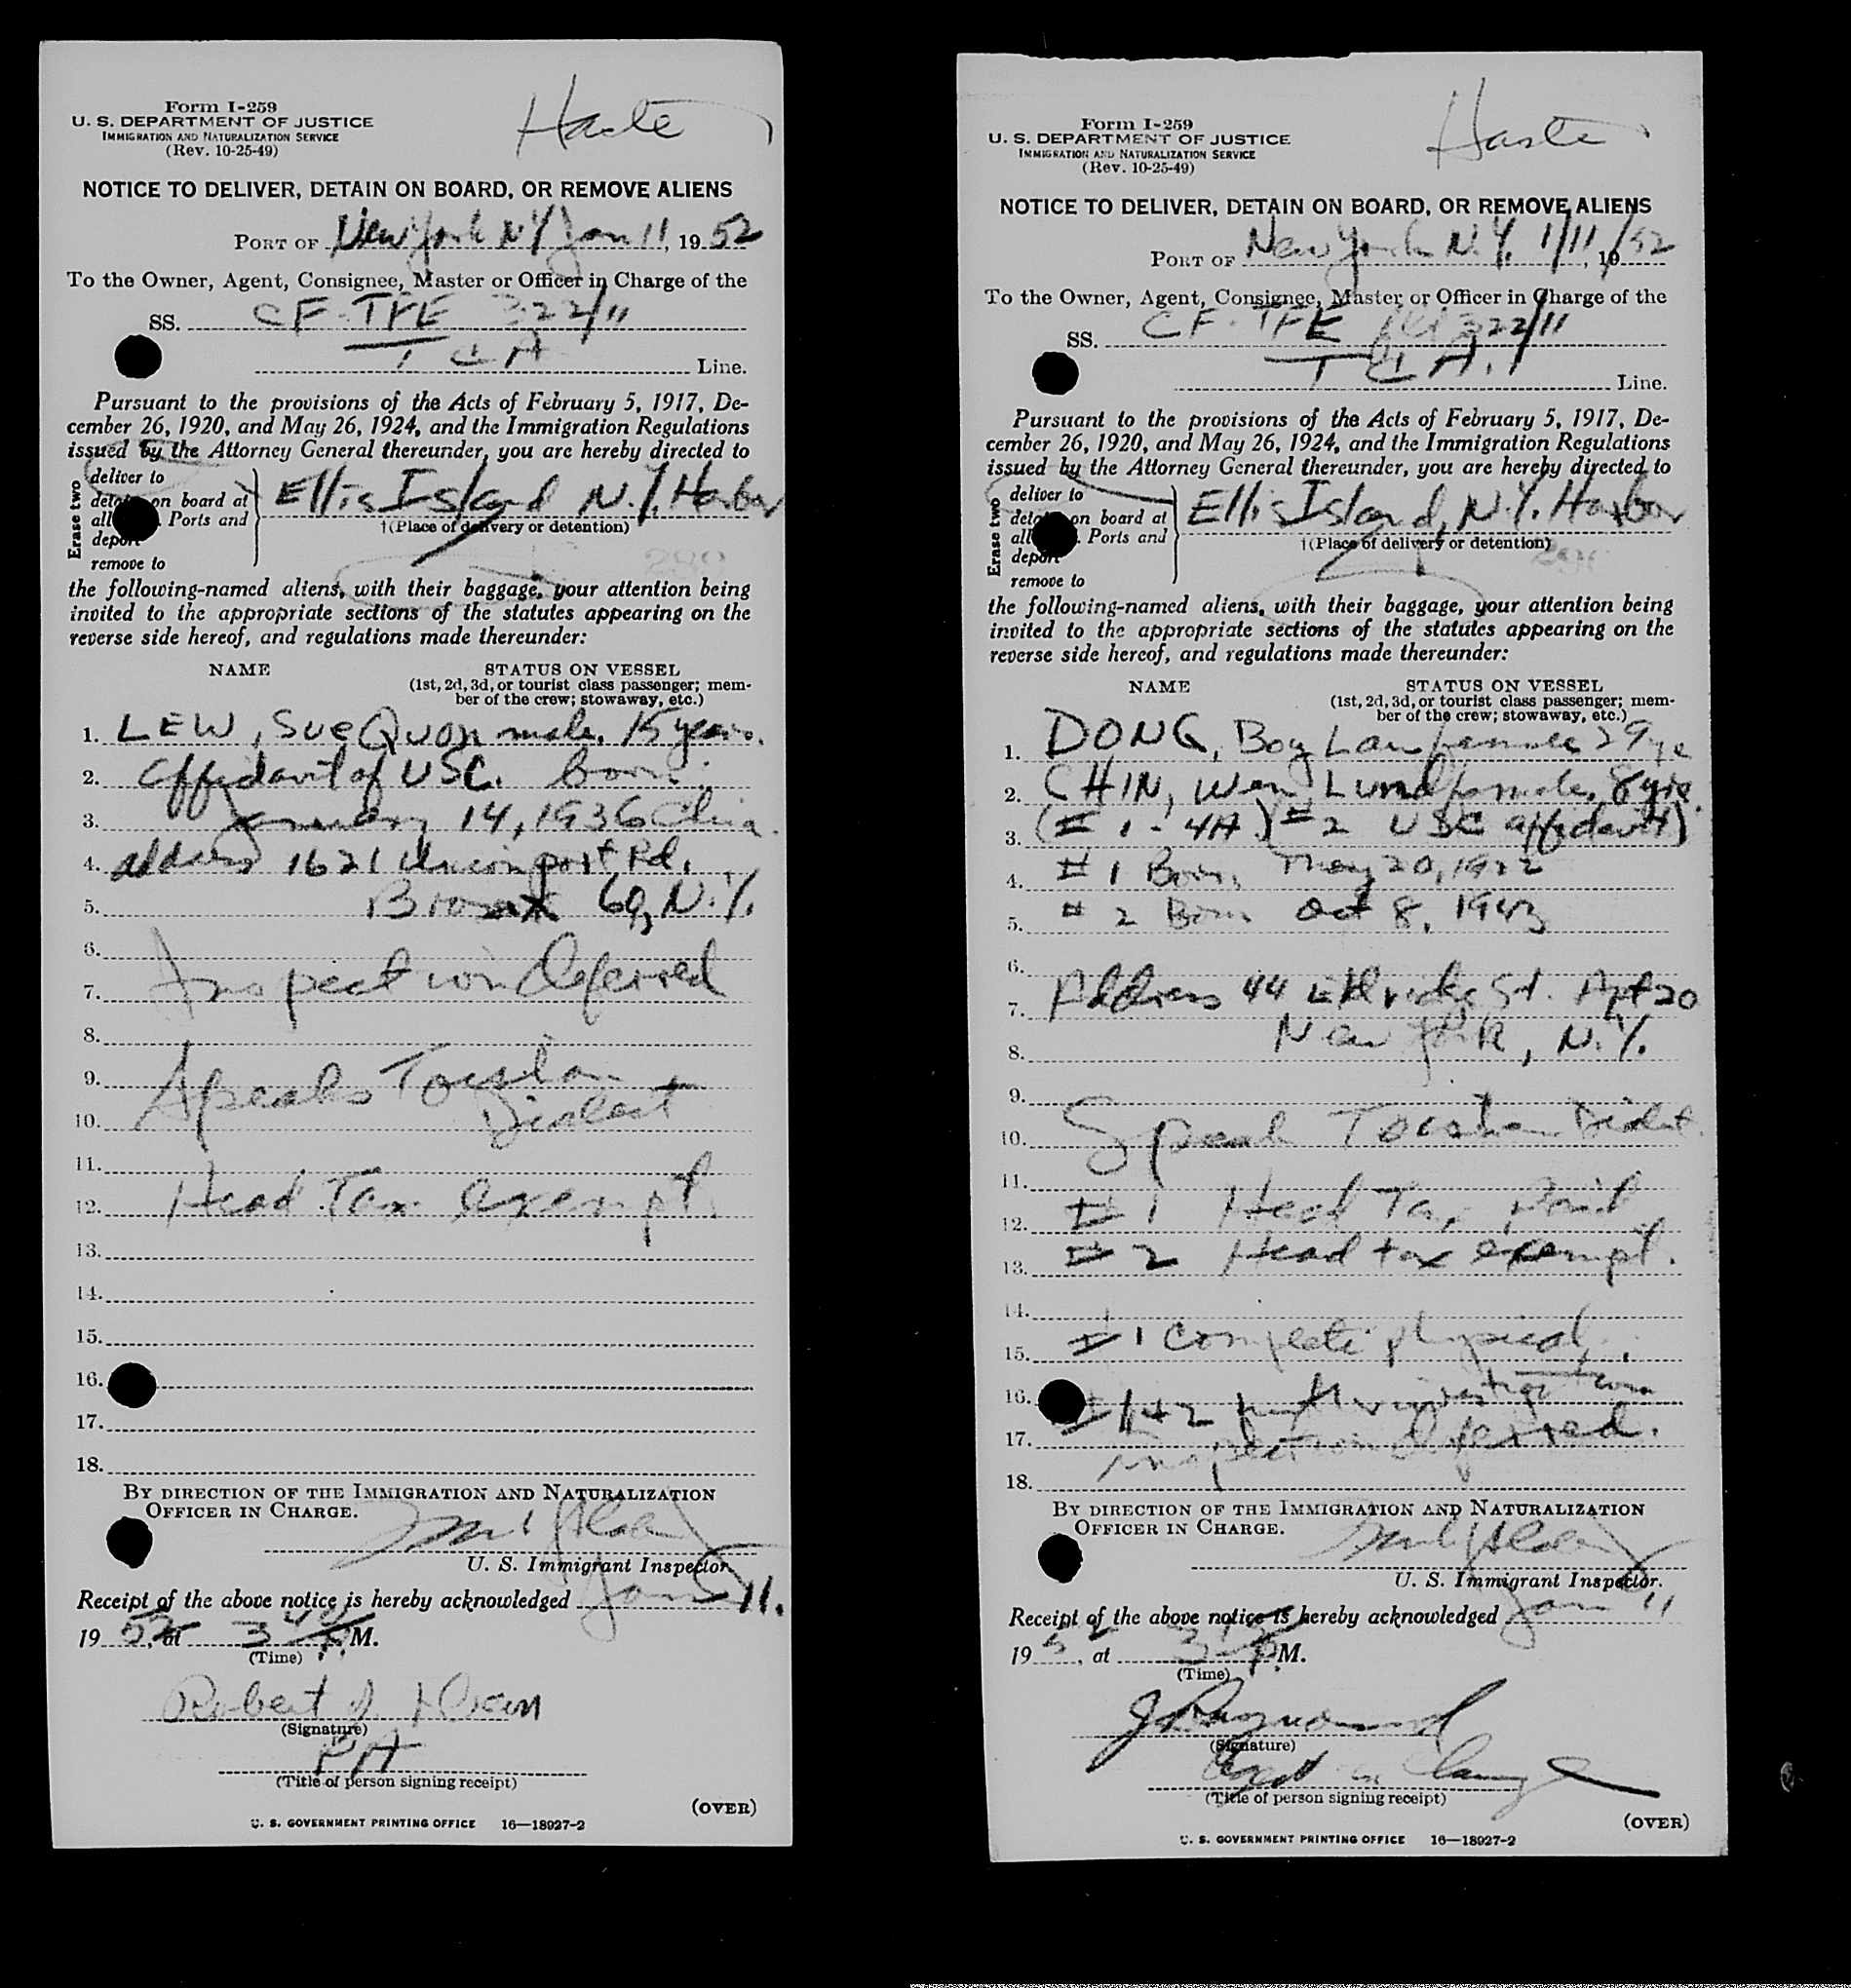 Form I-259
U. S. DEPARTMENT OF JUSTICE
IMMIGRATION AND NATURALIZATION SERVICE
(Rev. 10-25-49)
NOTICE TO DELIVER, DETAIN ON BOARD, OR REMOVE ALIENS
PORT OF New York NY Jan 11, 1952
To the Owner, Agent, Consignee, Master or Officer in Charge of the
SS. CF-TFE 322/11
TCA Line.
Pursuant to the provisions of the Acts of February 5, 1917, De-
cember 26, 1920, and May 26, 1924, and the Immigration Regulations
issued by the Attorney General thereunder, you are hereby directed to
Erase two
deliver to
on board at
all Ports and
deport
remove to
Ellis Island N.Y. Harbor
†(Place of delivery or detention)
the following-named aliens, with their baggage, your attention being
invited to the appropriate sections of the statutes appearing on the
reverse side hereof, and regulations made thereunder:
NAME STATUS ON VESSEL
(1st, 2d, 3d, or tourist class passenger; mem-
ber of the crew; stowaway, etc.)
1. LEW, Sue Quon male, 15 years.
2. affidavit of USC. born
3. January 14, 1936 China.
4. address 1621 Unionport Rd.
5. Bronx 60, N.Y.
6.
7. Inspection Deferred
8.
9. Speaks Toishan
10. Dialect
11.
12. Head Tax exempt.
13.
14.
15.
16.
17.
18.
BY DIRECTION OF THE IMMIGRATION AND NATURALIZATION
OFFICER IN CHARGE.
U. S. Immigrant Inspector.
Receipt of the above notice is hereby acknowledged Jan 11.
1952, at 3 40 P. M.
(Time)
Robert J
(Signature)
PA
(Title of person signing receipt)
(OVER)
U. S. GOVERNMENT PRINTING OFFICE 16—18927-2
Form I-259
U. S. DEPARTMENT OF JUSTICE
IMMIGRATION AND NATURALIZATION SERVICE
(Rev. 10-25-49)
NOTICE TO DELIVER, DETAIN ON BOARD, OR REMOVE ALIENS
PORT OF New York N.Y. 1/11/52, 19
To the Owner, Agent, Consignee, Master or Officer in Charge of the
SS. CF-TFE 322/11
TCA. Line.
Pursuant to the provisions of the Acts of February 5, 1917, De-
cember 26, 1920, and May 26, 1924, and the Immigration Regulations
issued by the Attorney General thereunder, you are hereby directed to
Erase two
deliver to
on board at
all Ports and
deport
remove to
Ellis Island, N.Y. Harbor
†(Place of delivery or detention)
the following-named aliens, with their baggage, your attention being
invited to the appropriate sections of the statutes appearing on the
reverse side hereof, and regulations made thereunder:
NAME STATUS ON VESSEL
(1st, 2d, 3d, or tourist class passenger; mem-
ber of the crew; stowaway, etc.)
1. DONG, Boy Lan female 29 yrs
2. CHIN, Wen Lund female, 8 yrs.
3. (#1 - 4A) #2 USC affidavit)
4. #1 Born May 20, 1922
5. #2 Born Oct 8, 1943
6.
7. Address 44 Eldridge St. Apt 20
8. New York, N.Y.
9.
10. Speak Toishan Dialect.
11.
12. #1 Head Tax Paid
13. #2 Head tax exempt.
14.
15. #1 Complete physical,
16. #1 + 2 further investigation
17. inspection deferred.
18.
BY DIRECTION OF THE IMMIGRATION AND NATURALIZATION
OFFICER IN CHARGE.
U. S. Immigrant Inspector.
Receipt of the above notice is hereby acknowledged Jan 11
1952, at P. M.
(Time)
J Raymond
(Signature)
Agent in Charge
(Title of person signing receipt)
(OVER)
U. S. GOVERNMENT PRINTING OFFICE 16—18927-2